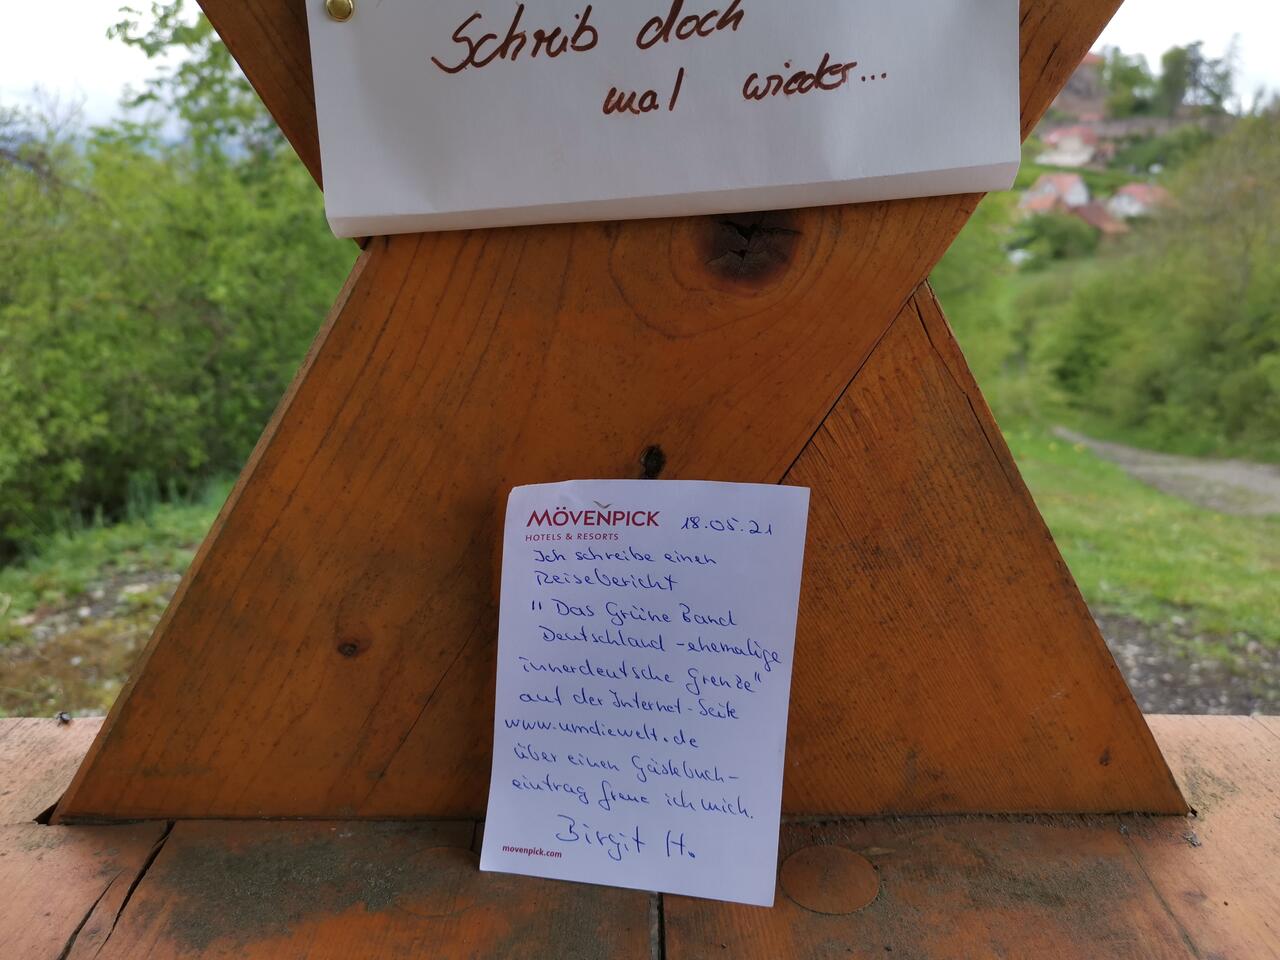 Schreib doch
mal wieder...
MÖVENPICK
HOTELS & RESORTS
18.05.21
Ich schreibe einen
Reisebericht
"Das Grüne Band
Deutschland - ehemalige
innerdeutsche Grenze"
auf der Internet-Seite
www.umdiewelt.de
über einen Gästebuch-
eintrag freue ich mich.
Birgit H.
movenpick.com